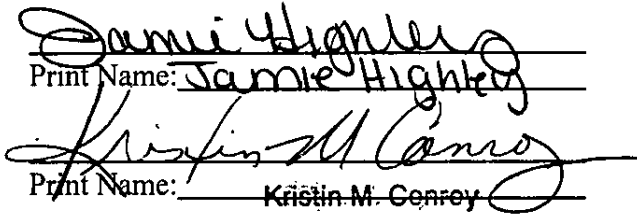 Jamie Highley
Print Name: Jamie Highley
Kristin M Conroy
Print Name: Kristin M. Conroy